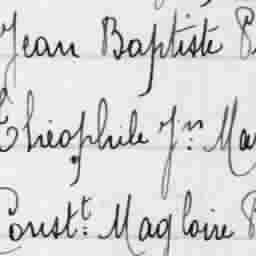 Jean Baptiste
Théophile Jn. Ma
Constt. Magloire